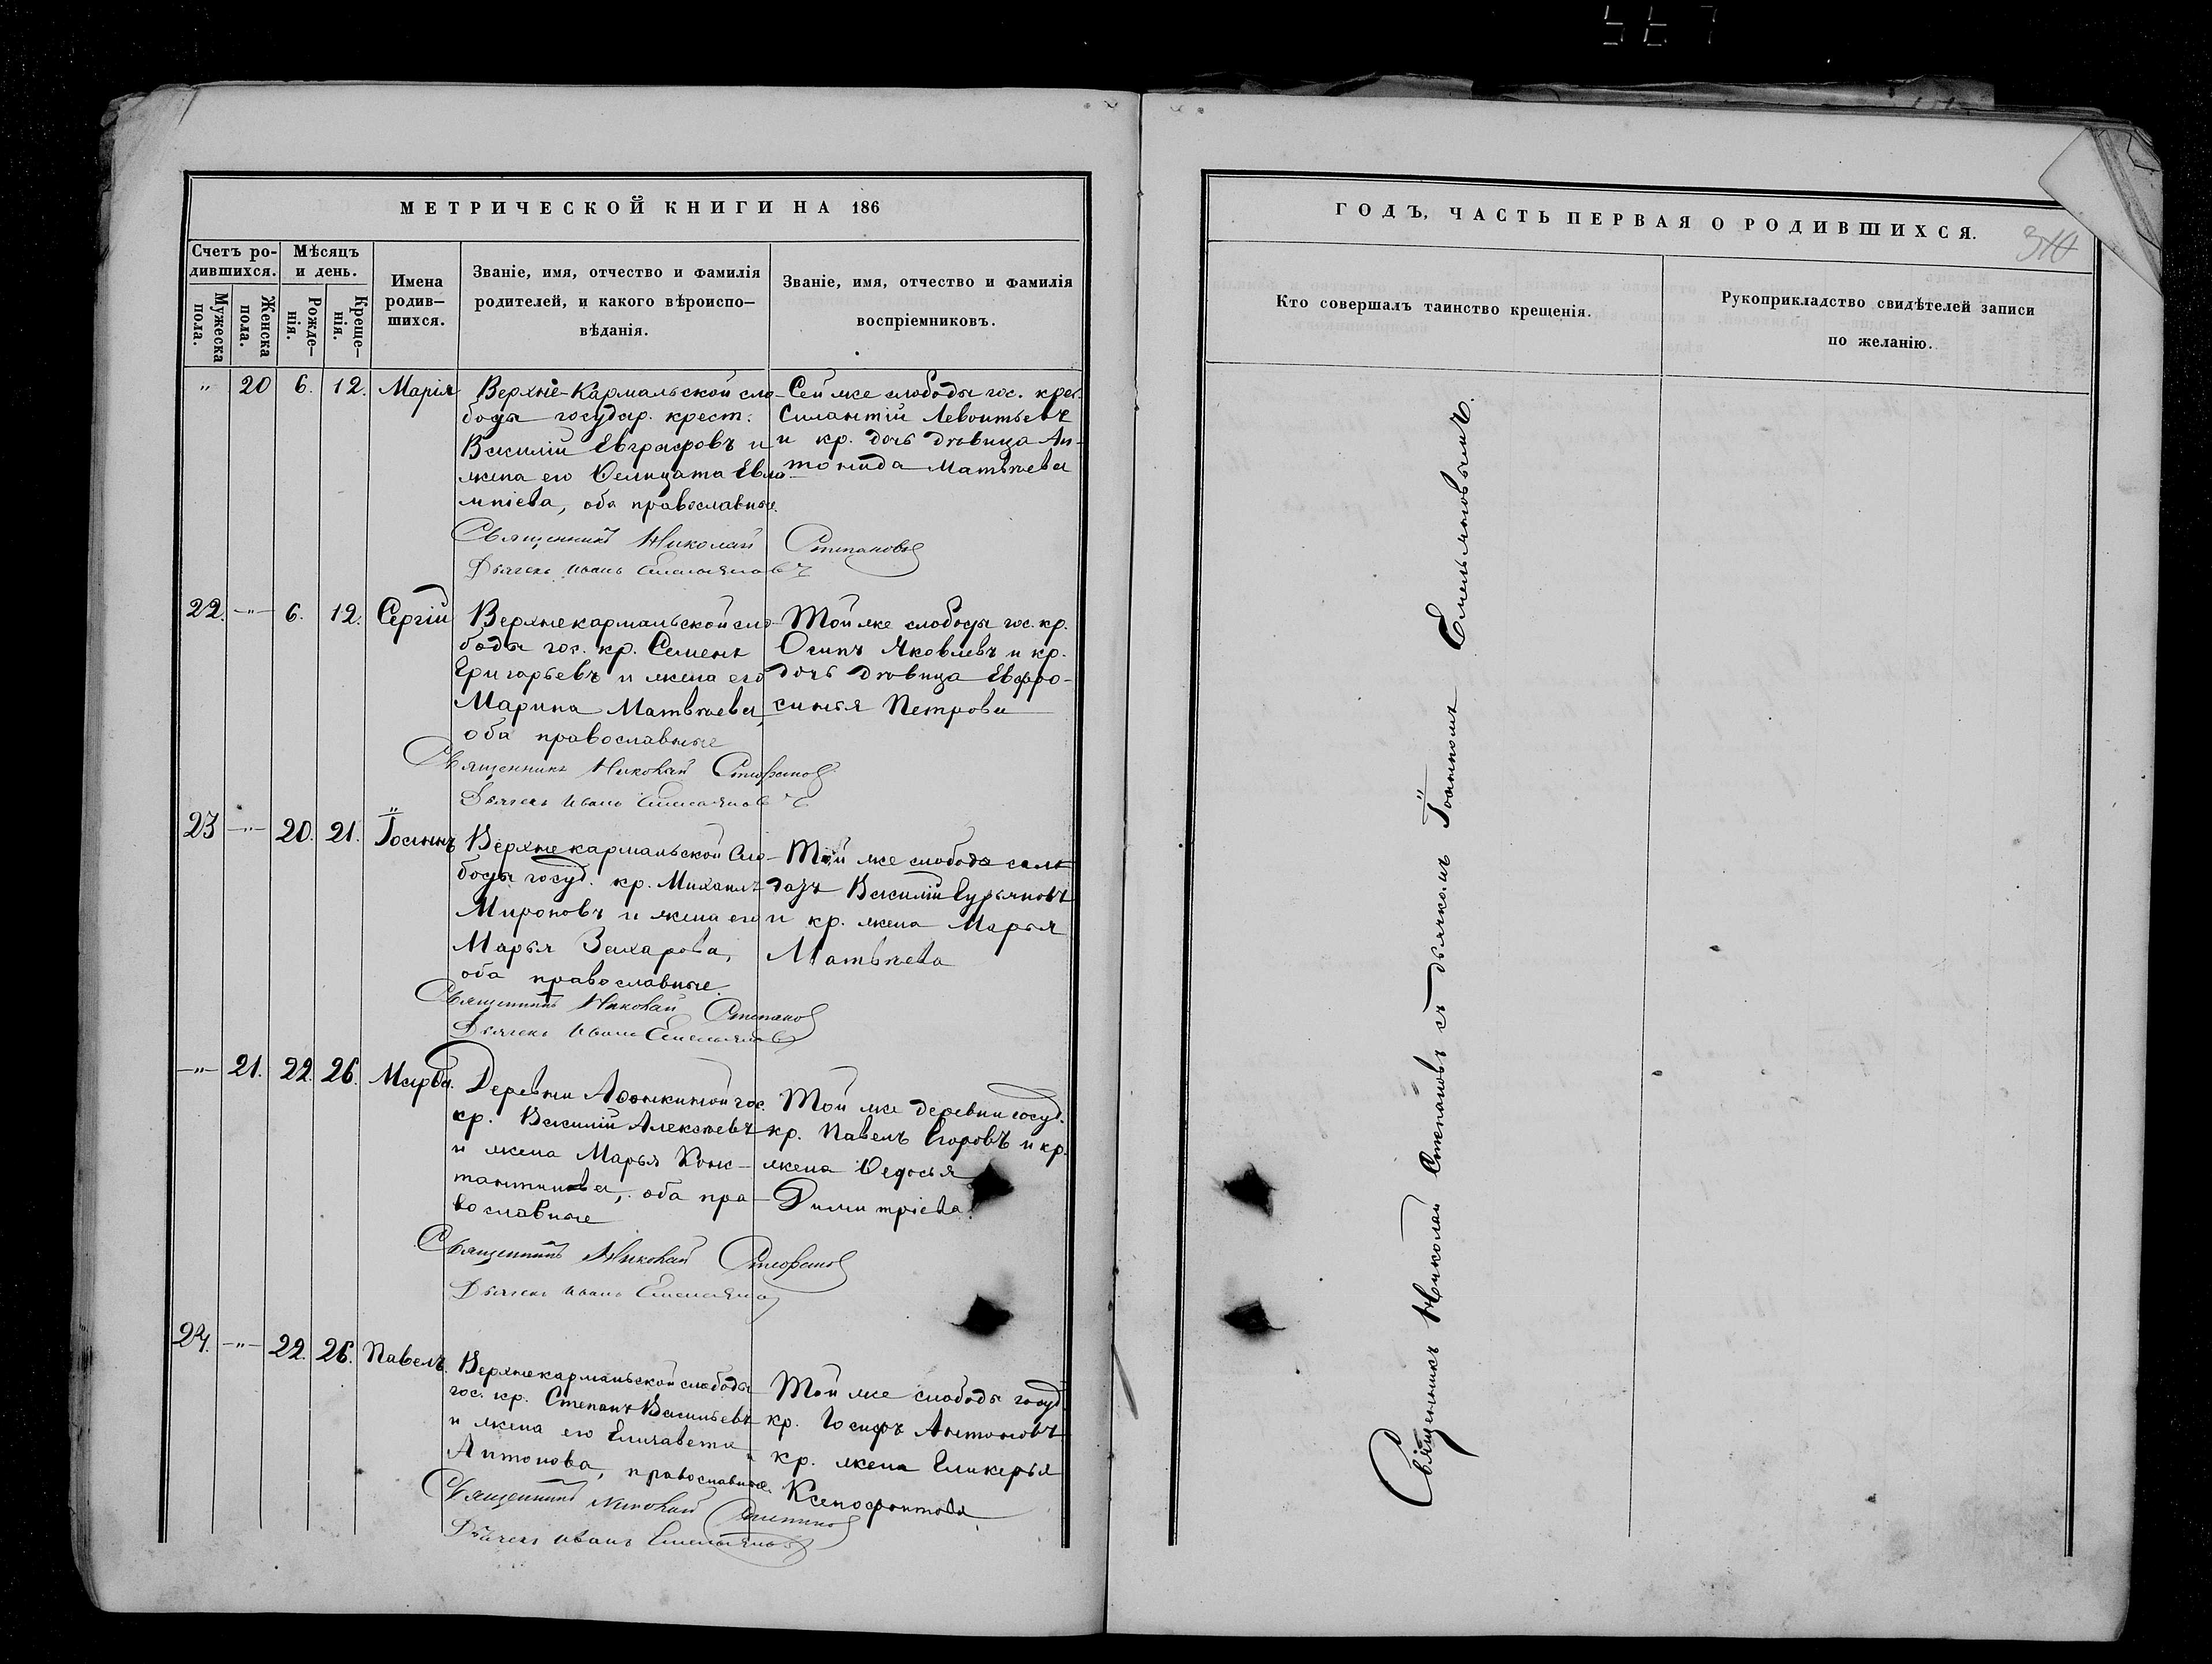 МЕТРИЧЕСКОЙ КНИГИ НА 186
Счетъ ро-
дившихся.
Мѣсяцъ
и день.
Мужеска
пола.
Женска
пола.
Рожде-
нія.
Креще-
нія.
Имена
родив-
шихся.
Званіе, имя, отчество и фамилія
родителей, и какого вѣроиспо-
вѣданія.
Званіе, имя, отчество и фамилія
воспріемниковъ.
" 20 6. 12. Марія
Верхне-Кармальской сло-
боды государ. крест.
Василій Евграфовъ и
жена его Ѳелицата Евла-
мпіева, оба православные.
Сей же слободы гос. крес.
Силантій Левонтьевъ
и кр. дочь дѣвица Ан-
тонида Матвѣева
Священникъ Николай Степановъ
Дьячекъ Иванъ Емельяновъ
22. -"- 6. 12. Сергій
Верхнекармальской сло-
боды гос. кр. Семенъ
Григорьевъ и жена его
Марина Матвѣева
оба православные
Той же слободы гос. кр.
Осипъ Яковлевъ и кр.
дочь дѣвица Евфро-
синья Петрова
Священникъ Николай Стефановъ
Дьячекъ Иванъ Емельяновъ
23 -"- 20. 21. Іоаннъ
Верхнекармальской Сло-
боды госуд. кр. Михаилъ
Мироновъ и жена его
Марья Захарова,
оба православные.
Той же слободы солъ
датъ Василій Гурьяновъ
и кр. жена Марья
Матвѣева
Священникъ Николай Степановъ
Дьячекъ Иванъ Емельяновъ
-"- 21. 22. 26. Марѳа.
Деревни Аѳонкиной гос.
кр. Василій Алексѣевъ
и жена Марья Конс-
тантинова, оба пра-
вославные
Той же деревни госуд.
кр. Павелъ Егоровъ и кр.
жена Ѳедосья
Димитріева.
Священникъ Николай Стефановъ
Дьячекъ Иванъ Емельяновъ
24. -"- 22. 26. Павелъ.
Верхнекармальской слободы
гос. кр. Степанъ Васильевъ
и жена его Елизавета
Антонова, православные.
Той же слободы госуд.
кр. Іосифъ Антоновъ
кр. жена Гликерья
Ксенофонтова
Священникъ Николай Степановъ
Дьячекъ Иванъ Емельяновъ
ГОДЪ, ЧАСТЬ ПЕРВАЯ О РОДИВШИХСЯ.
Кто совершалъ таинство крещенія.
Рукоприкладство свидѣтелей записи
по желанію.
Священникъ Николай Степановъ съ дьячкомъ Іоанномъ Емельяновымъ.